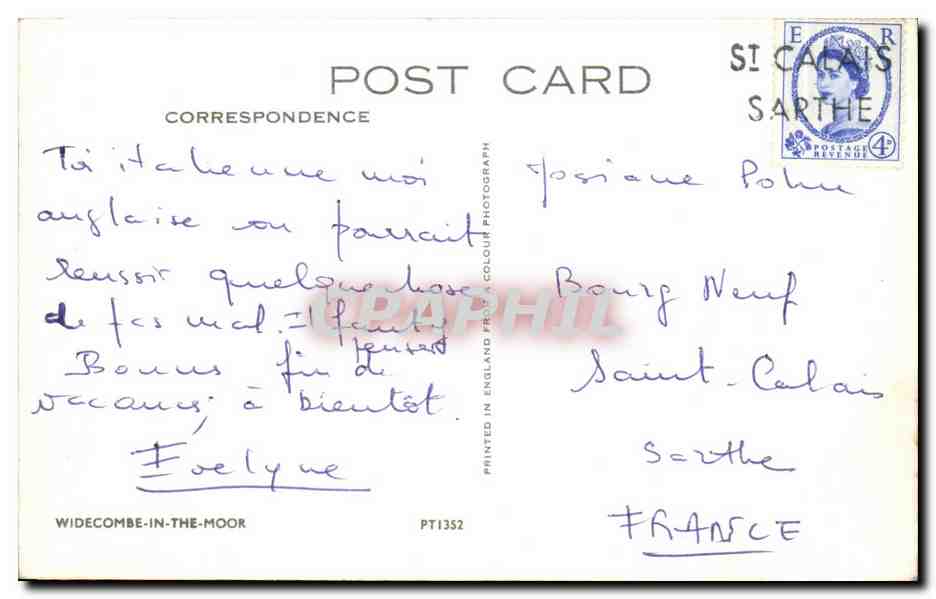 POST CARD
CORRESPONDENCE
Toi italienne moi
anglaise on pourrait
reussir quelque chose
de pas mal. Il faut y
penser
Bonne fin de
vacances, à bientôt.
Evelyne
WIDECOMBE-IN-THE-MOOR
PT1352
PRINTED IN ENGLAND FROM A COLOUR PHOTOGRAPH
ST CALAIS
SARTHE
E R
POSTAGE
REVENUE
4D
Josiane
Bourg Neuf
Saint-Calais
Sarthe
FRANCE
CPAPHIL